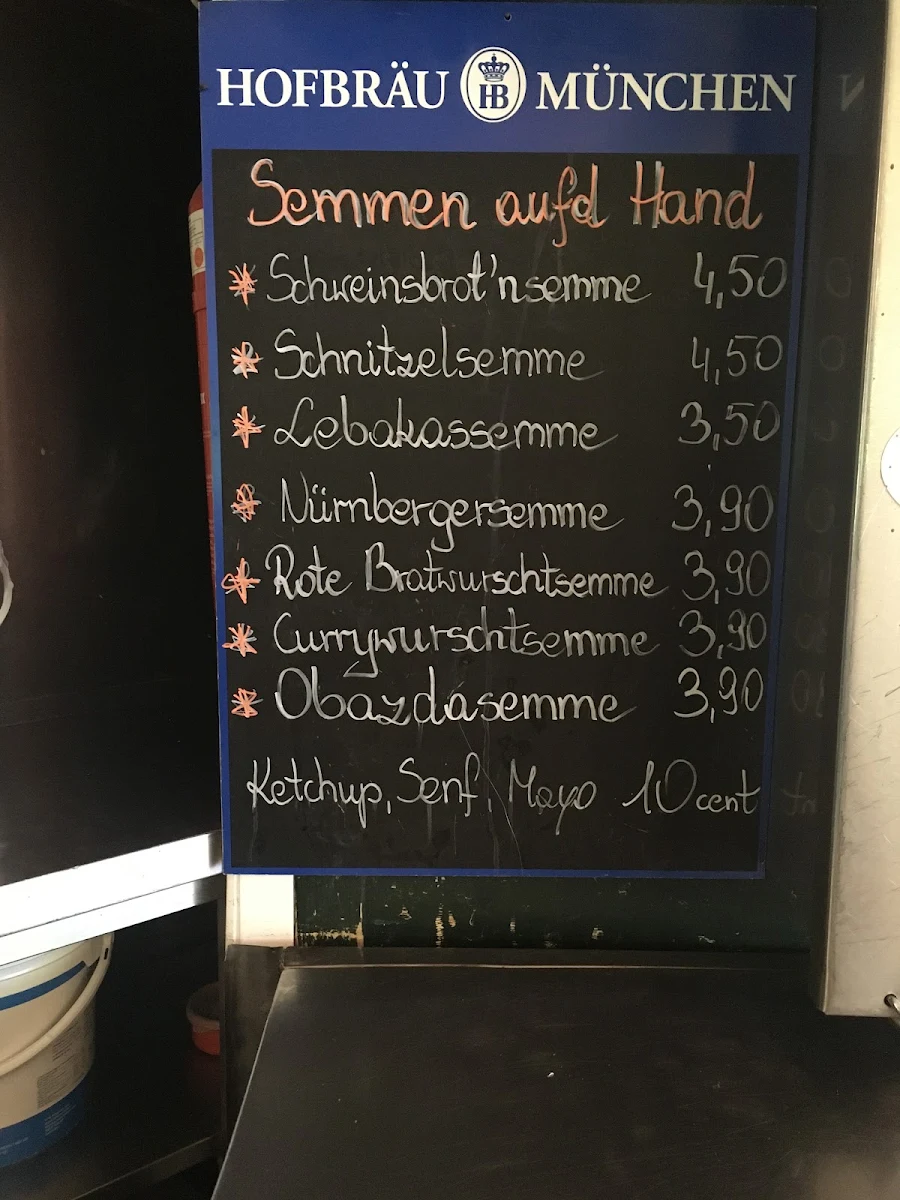 HOFBRÄU HB MÜNCHEN
Semmen aufd Hand
* Schweinsbrot'nsemme 4,50
* Schnitzelsemme 4,50
* Lebakassemme 3,50
* Nürnbergersemme 3,90
* Rote Bratwurschtsemme 3,90
* Currywurschtsemme 3,90
* Obazdasemme 3,90
Ketchup, Senf, Mayo 10 cent